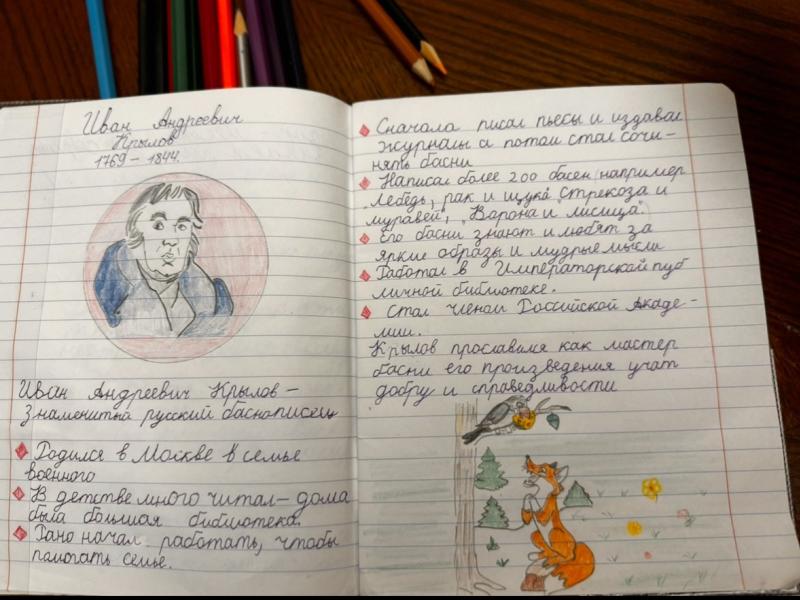 Иван Андреевич
Крылов
1769 – 1844.
Иван Андреевич Крылов –
знаменитый русский баснописец
Родился в Москве в семье
военного
В детстве много читал – дома
была большая библиотека.
Рано начал работать, чтобы
помогать семье.
Сначала писал пьесы и издавал
журналы а потом стал сочи-
нять басни
Написал более 200 басен (например
Лебедь, рак и щука", "Стрекоза и
муравей", "Ворона и лисица".
Его басни знают и любят за
яркие образы и мудрые мысли
Работал в Императорской пуб
личной библиотеке.
Стал членом Российской Акаде-
мии.
Крылов прославился как мастер
басни его произведения учат
добру и справедливости